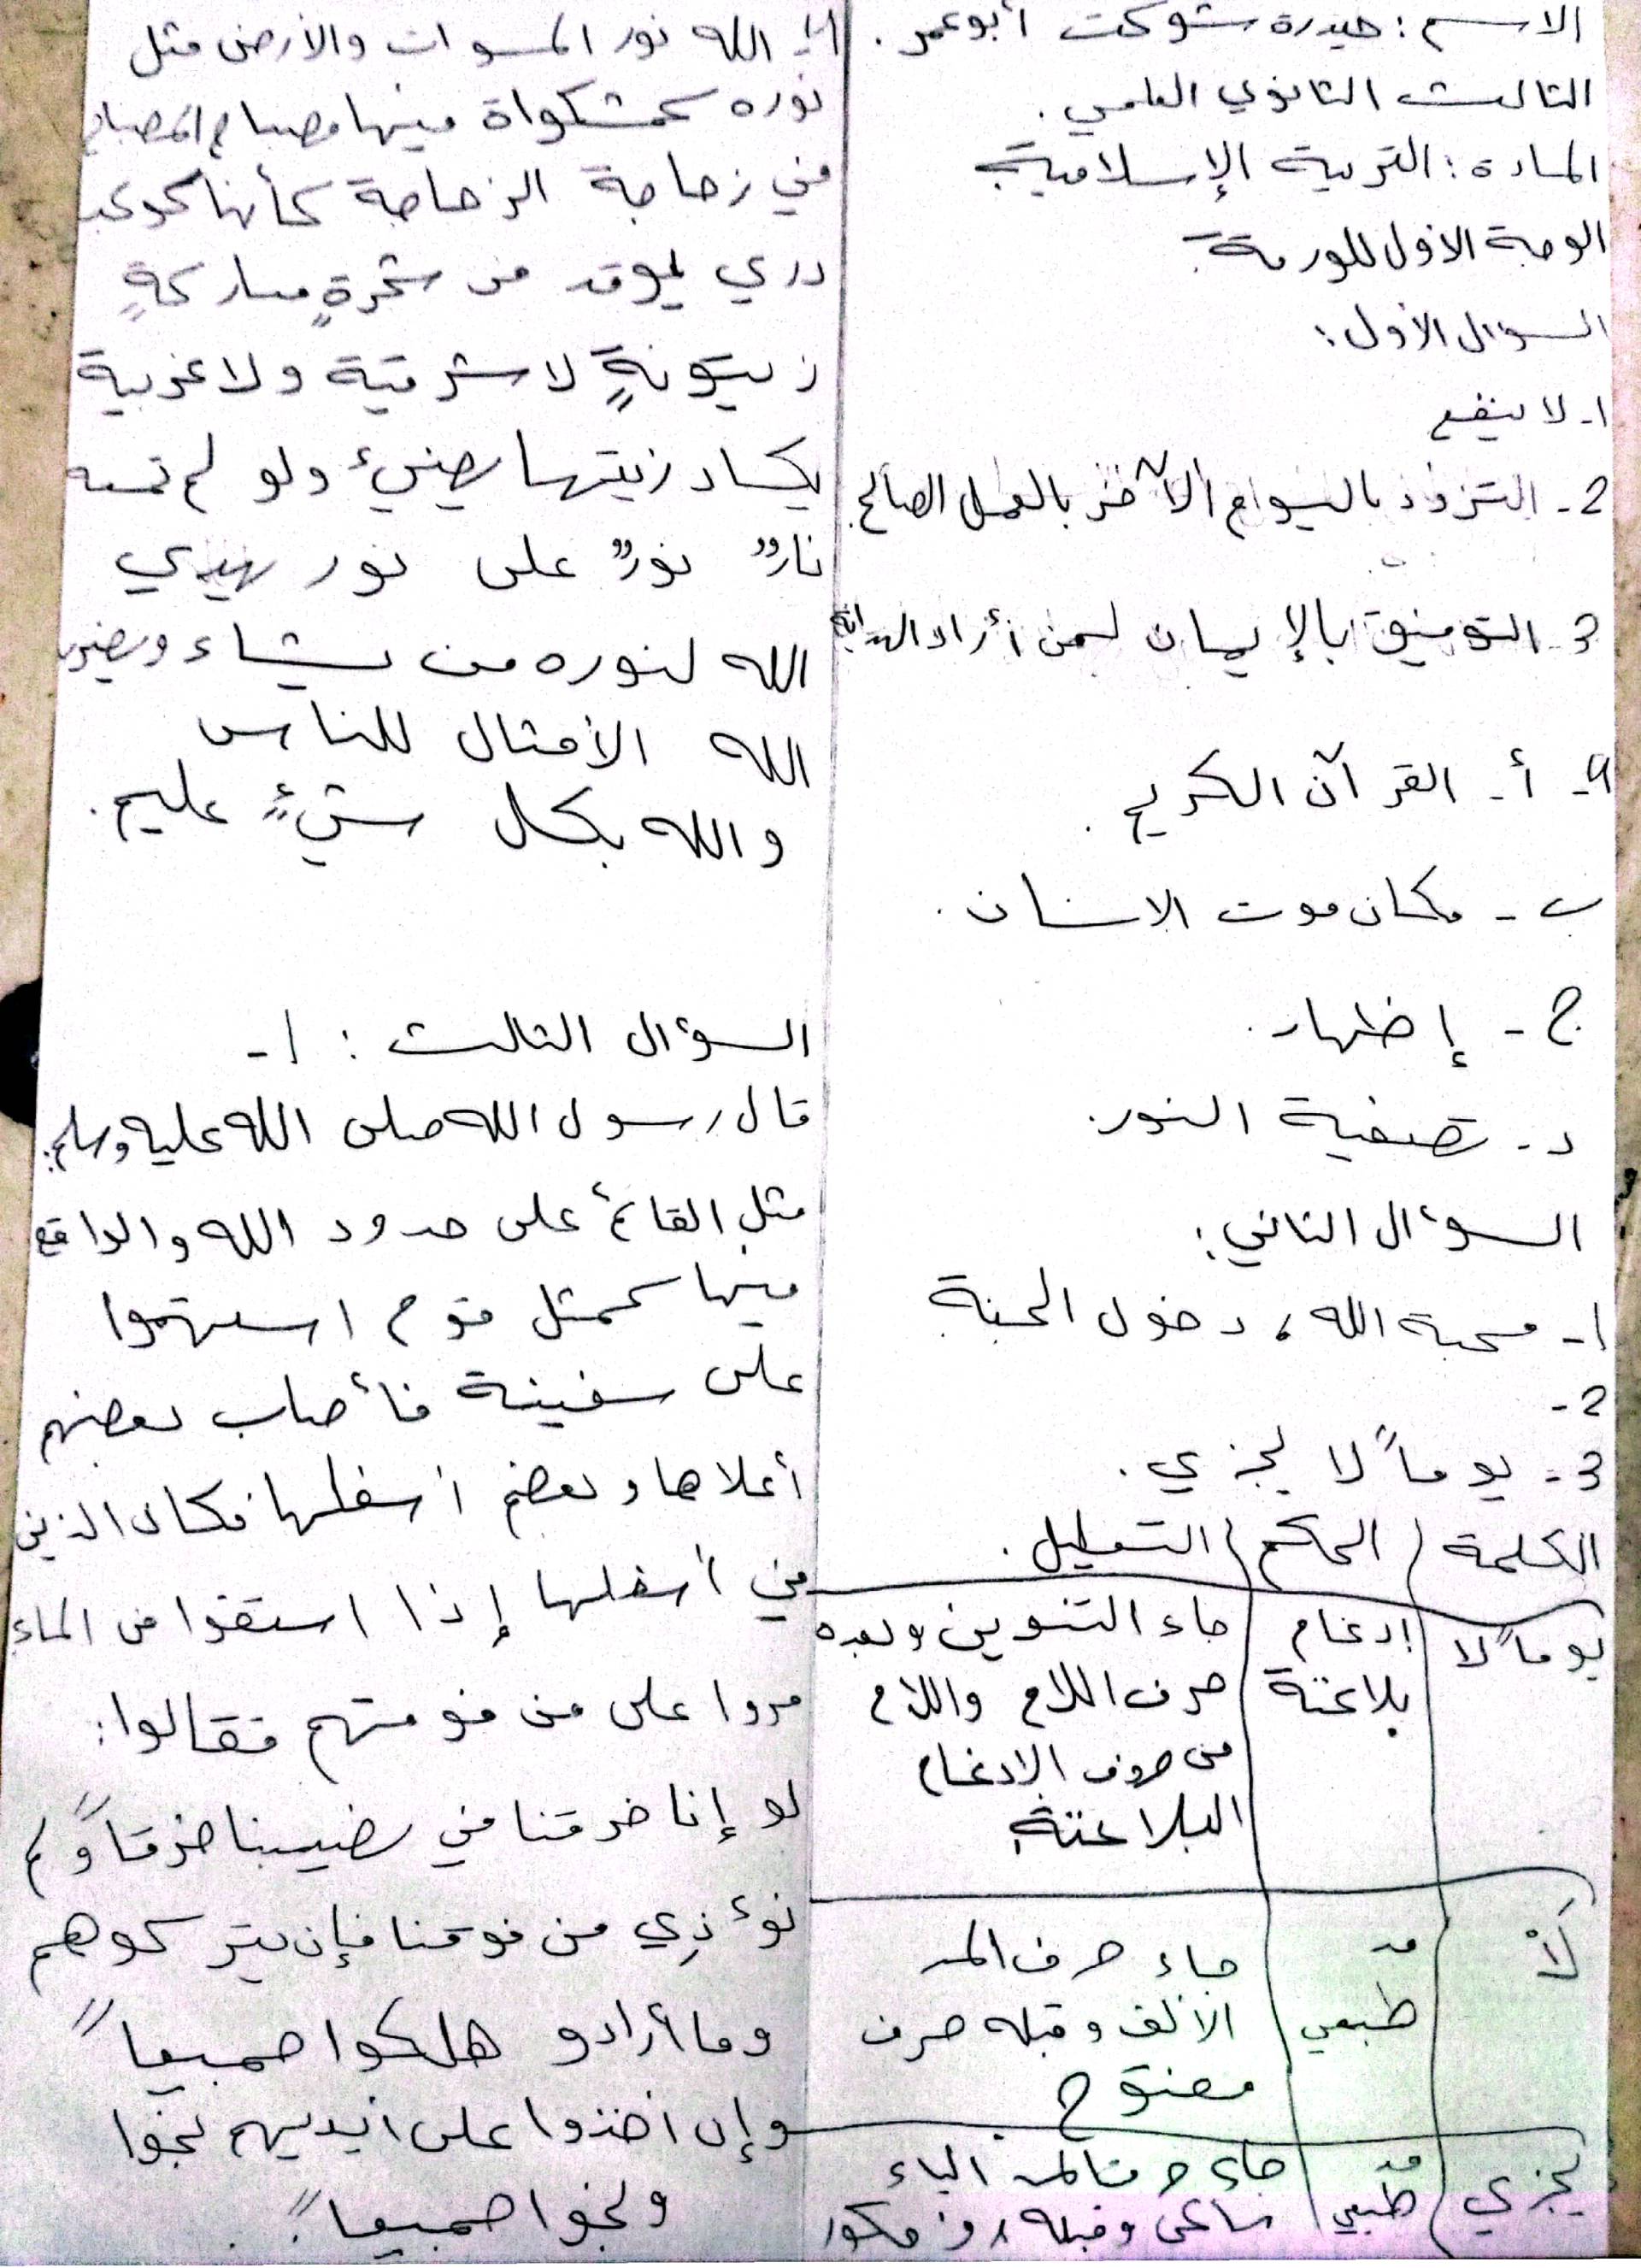 الاسم : حيدرة شوكت أبو عمر .
الثالث الثانوي العلمي .
المادة : التربية الإسلامية
الوجه الأول للورقة
السؤال الأول :
1- لا ينفع
2- التزود باليوم الآخر بالعمل الصالح .
3- التوفيق بالإيمان لمن أراد الهداية
4- أ- القرآن الكريم .
ب - مكان موت الانسان .
ج - إظهار .
د - تصفية النور .
السؤال الثاني :
1- محبة الله ، دخول الجنة
2-
3- يوماً لا يجزي .
الكلمة / الحكم / التعليل .
يوماً لا / إدغام / جاء التنوين وبعده
بلاغنة / حرف اللام واللام
من حروف الادغام
البلاغنة
لَاْ / مد / جاء حرف المد
طبيعي / الألف وقبله حرف
مفتوح .
يجزي / مد / جاء حرف المد الياء
طبيعي / ساكن وقبله
4- الله نور السموات والأرض مثل
نوره كمشكواة فيها مصباح المصباح
في زجاجة الزجاجة كأنها كوكب
دري يوقد من شجرةٍ مباركةٍ
زيتونةٍ لا شرقية ولا غربية
يكاد زيتها يضيء ولو لم تمسه
نارٌ نورٌ على نور يهدي
الله لنوره من يشاء ويضرب
الله الأمثال للناس
والله بكل شيءٍ عليم .
السؤال الثالث : 1-
قال رسول الله صلى الله عليه وسلم :
مثل القائم على حدود الله والواقع
فيها كمثل قوم استهموا
على سفينة فأصاب بعضهم
أعلاها وبعضهم أسفلها فكان الذين
في أسفلها إذا استقوا من الماء
مروا على من فوقهم فقالوا :
لو إنا خرقنا في نصيبنا خرقاً ولم
نؤذِي من فوقنا فإن يتركوهم
وما أرادو هلكوا جميعاً
وإن أخذوا على أيديهم نجوا
ونجوا جميعاً .